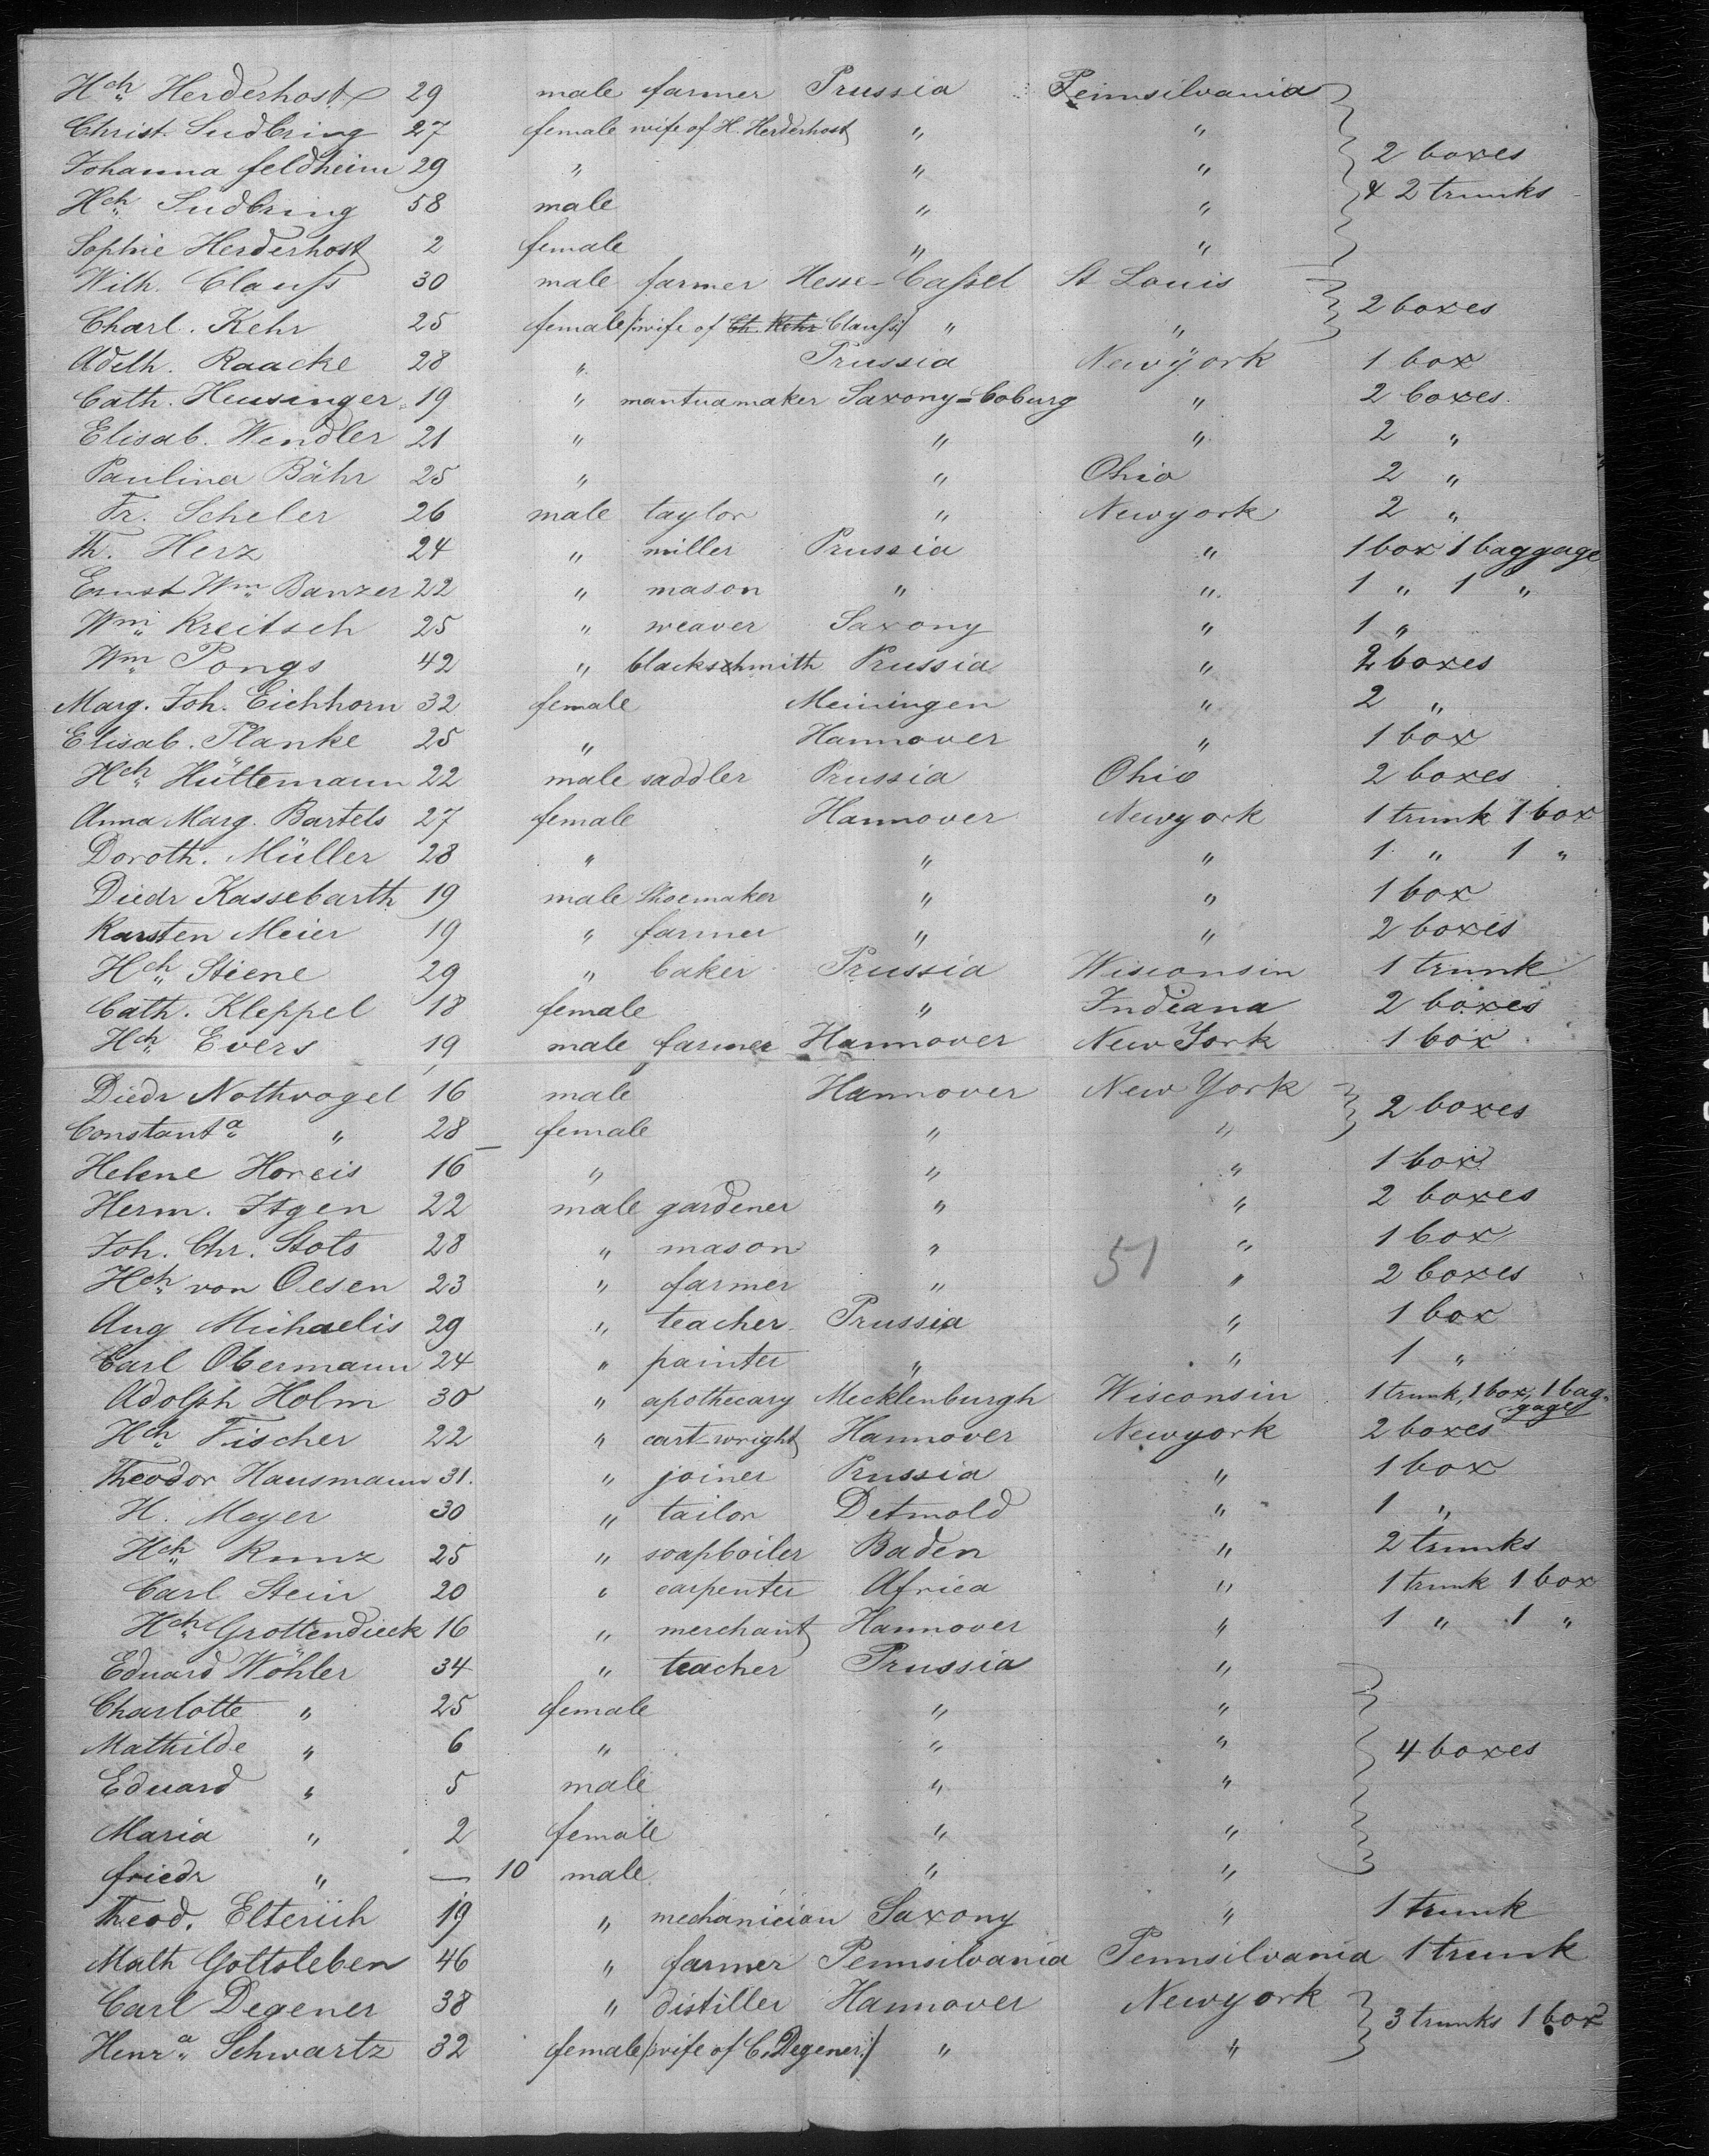 Hch Herderhost 29 male farmer Prussia Pennsilvania
Christ. Sudbring 27 female wife of H. Herderhost " "
Johanna feldheim 29 " " " 2 boxes
Hch Sudbring 58 male " " & 2 trunks
Sophie Herderhost 2 female " "
Wilh. Clauß 30 male farmer Hesse-Caßel St Louis
Charl. Kehr 25 female /:wife of Ch. Kehr Clauß:/ " " 2 boxes
Adelh. Raacke 28 " Prussia Newyork 1 box
Cath. Heusinger 19 " mantuamaker Saxony=Coburg " 2 boxes
Elisab. Wendler 21 " " " 2 "
Paulina Bähr 25 " " Ohio 2 "
Fr. Scheler 26 male taylor " Newyork 2 "
Th. Herz 24 " miller Prussia " 1 box 1 baggage
Ernst Wm Banzer 22 " mason " " 1 " 1 "
Wm Kreitsch 25 " weaver Saxony " 1 "
Wm Pongs 42 " blackschmith Prussia " 2 boxes
Marg. Joh. Eichhorn 32 female Meiningen " 2 "
Elisab. Planke 25 " Hannover " 1 box
Hch Hüttemann 22 male saddler Prussia Ohio 2 boxes
Anna Marg. Bartels 27 female Hannover Newyork 1 trunk 1 box
Doroth. Müller 28 " " " 1 " 1 "
Diedr Kassebarth 19 male Shoemaker " " 1 box
Karsten Meier 19 " farmer " " 2 boxes
Hch Stiene 29 " baker Prussia Wisconsin 1 trunk
Cath. Kleppel 18 female " Indiana 2 boxes
Hch Evers 19 male farmer Hannover New York 1 box
Diedr Nothvogel 16 male Hannover New York 2 boxes
Constanta " 28 female " "
Helene Horeis 16 " " " 1 box
Herm. Itgen 22 male gardener " " 2 boxes
Joh. Chr. Stots 28 " mason " 51 " 1 box
Hch von Oesen 23 " farmer " " 2 boxes
Aug Michaelis 29 " teacher Prussia " 1 box
Carl Obermann 24 " painter " " 1 "
Adolph Holm 30 " apothecary Mecklenburgh Wisconsin 1 trunk, 1 box, 1 bag-
gage
Hch Fischer 22 " cart-wright Hannover Newyork 2 boxes
Theodor Hausmann 31. " joiner Prussia " 1 box
H. Meyer 30 " tailor Detmold " 1 "
Hch Kunz 25 " soapboiler Baden " 2 trunks
Carl Stein 20 " carpenter Africa " 1 trunk 1 box
Hch Grottendieck 16 " merchant Hannover " 1 " 1 "
Eduard Wöhler 34 " teacher Prussia "
Charlotte " 25 female " "
Mathilde " 6 " " " 4 boxes
Eduard " 5 male " "
Maria " 2 female " "
friedr " — 10 male " "
Theod. Elterich 19 " mechanician Saxony " 1 trunk
Math Gottsleben 46 " farmer Pennsilvania Pennsilvania 1 trunk
Carl Degener 38 " distiller Hannover Newyork 3 trunks 1 box
Henra Schwartz 32 female /:wife of C. Degener:/ " "